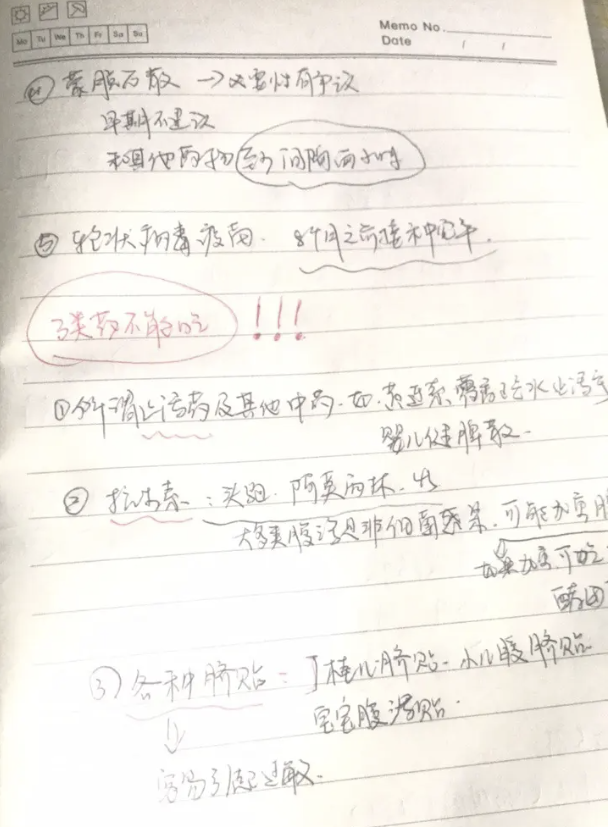 Memo No.
Date / /
Mo Tu We Th Fr Sa Su
④ 蒙脱石散 → 必要性有争议
早期不建议
和其他药物至少间隔两小时
⑤ 轮状病毒疫苗. 8个月之前接种完毕.
3类药不能吃 !!!
①所谓止泻药及其他中药. 如. 黄连素, 藿香正气水 止泻
婴儿健脾散.
② 抗生素: 头孢. 阿莫西林. 
大多数腹泻是非细菌感染, 可能加重
如果 可吃
③ 各种脐贴: 丁桂儿脐贴. 小儿暖脐贴
宝宝腹泻贴.
↓
容易引起过敏.